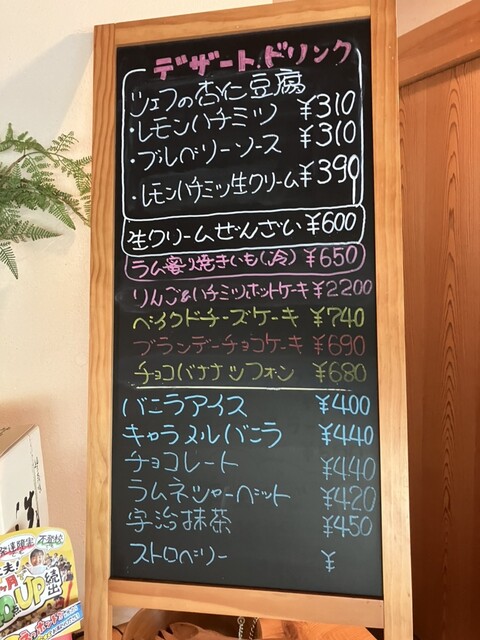 デザートドリンク
シェフの杏仁豆腐
・レモンハチミツ ¥310
・ブルーベリーソース ¥310
・レモンハチミツ生クリーム ¥390
生クリームぜんざい ¥600
ラム蜜焼きいも(冷) ¥650
りんご&ハチミツホットケーキ ¥2200
ベイクドチーズケーキ ¥740
ブランデーチョコケーキ ¥690
チョコバナナシフォン ¥680
バニラアイス ¥400
キャラメルバニラ ¥440
チョコレート ¥440
ラムネシャーベット ¥420
宇治抹茶 ¥450
ストロベリー ¥
発達障害 不登校
UP 続出